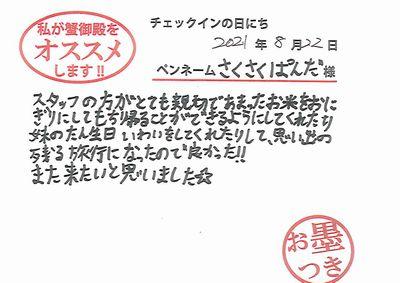 私が蟹御殿を
オススメ
します!!
チェックインの日にち
2021年8月22日
ペンネーム さくさくぱんだ 様
スタッフの方がとても親切であまったお米をおに
ぎりにしてもち帰ることができるようにしてくれたり
妹のたん生日いわいをしてくれたりして、思い出の
残る旅行になったので良かった!!
また来たいと思いました☆
お墨
つき